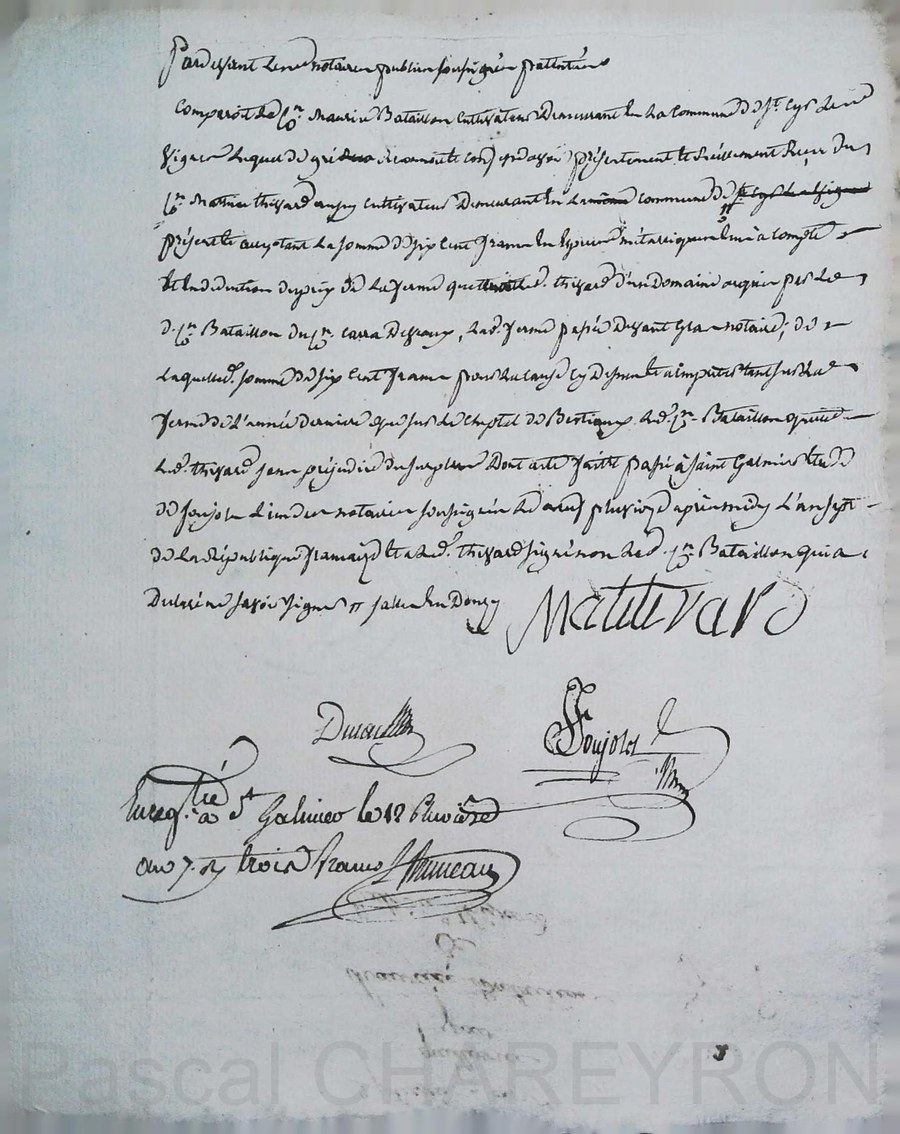 Pardevant le notaire public soussigné patenté
Comparoit le Cn. Maurice Bataillon cultivateur demeurant en la commune de St. Cyr les
vignes lequel de gré reconnoit et confesse avoir présentement et réellement reçu du
Cn. Mathieu thevard aussy cultivateur demeurant en la commune de St Cyr les vignes
présent et acceptant la somme de six cent francs en espèces métalliques à compte
et en déduction du prix de la ferme que led. thevard d'un domaine acquis par le
d. Cn. Bataillon du Cn. Carra Devaux, lad. ferme passée devant notaire; de
laquelle d. somme de six cent francs pour la cause cy dessus et à imputer tant sur la
ferme de l'année dernière que sur le cheptel de Bestiaux led. Cn. Bataillon quitte
led. thevard sans préjudice du surplus Dont acte fait et passé à Saint Galmier étude
de Soujols l'un des notaires soussigné le pluviose après midy l'an sept
de la République française et a led. thevard signé non led. Cn. Bataillon qui a
declaré ne savoir signer // salt en Donzy
Mat tevard
Soujolos
Enregtré à St Galmier le 12 Pluviose
an 7. R trois francs Bruneau
Pascal CHAREYRON